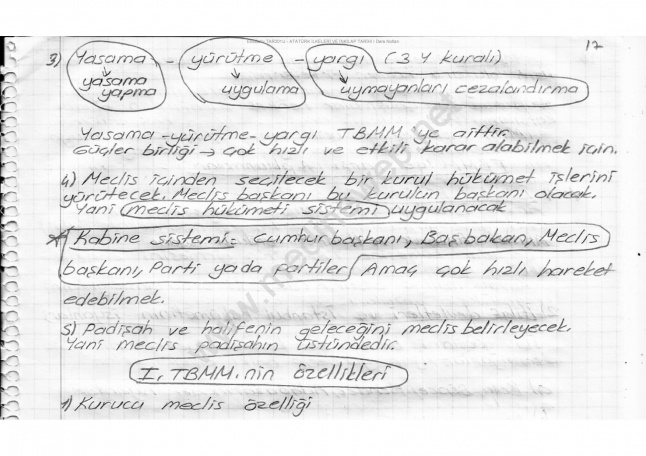 ATATÜRK İLKELERİ VE İNKILAP TARİHİ / Ders Notları
17
3) Yasama - yürütme - yargı (3 Y kuralı)
yasama yapma uygulama uymayanları cezalandırma
Yasama-yürütme-yargı TBMM ye aittir.
Güçler birliği → çok hızlı ve etkili karar alabilmek için.
4) Meclis içinden seçilecek bir kurul hükümet işlerini
yürütecek. Meclis başkanı bu kurulun başkanı olacak.
Yani meclis hükümeti sistemi uygulanacak
* Kabine sistemi = Cumhurbaşkanı, Başbakan, Meclis
başkanı, Parti yada partiler Amaç çok hızlı hareket
edebilmek.
5) Padişah ve halifenin geleceğini meclis belirleyecek.
Yani meclis padişahın üstündedir.
I. TBMM.nin özellikleri
1) Kurucu meclis özelliği